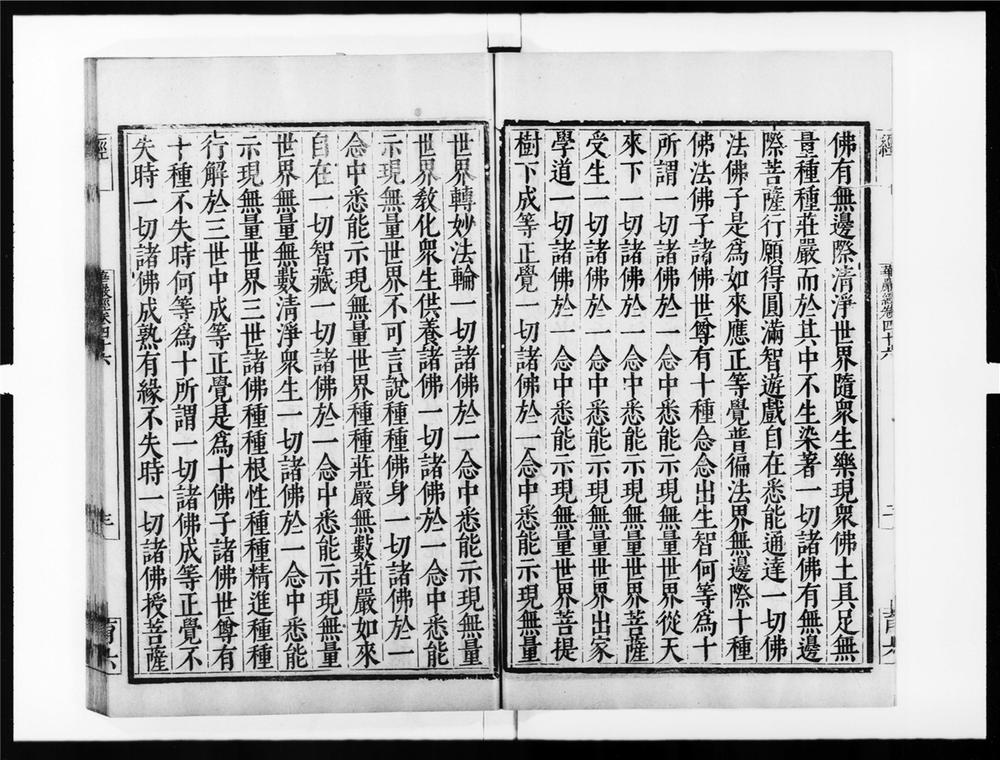 佛有無邊際清淨世界隨衆生樂現衆佛土具足無
量種種莊嚴而於其中不生染著一切諸佛有無邊
際菩薩行願得圓滿智遊戲自在悉能通達一切佛
法佛子是爲如來應正等覺普徧法界無邊際十種
佛法佛子諸佛世尊有十種念念出生智何等爲十
所謂一切諸佛於一念中悉能示現無量世界從天
來下一切諸佛於一念中悉能示現無量世界菩薩
受生一切諸佛於一念中悉能示現無量世界出家
學道一切諸佛於一念中悉能示現無量世界菩提
樹下成等正覺一切諸佛於一念中悉能示現無量
世界轉妙法輪一切諸佛於一念中悉能示現無量
世界教化衆生供養諸佛一切諸佛於一念中悉能
示現無量世界不可言說種種佛身一切諸佛於一
念中悉能示現無量世界種種莊嚴無數莊嚴如來
自在一切智藏一切諸佛於一念中悉能示現無量
世界無量無數清淨衆生一切諸佛於一念中悉能
示現無量世界三世諸佛種種根性種種精進種種
行解於三世中成等正覺是爲十佛子諸佛世尊有
十種不失時何等爲十所謂一切諸佛成等正覺不
失時一切諸佛成熟有緣不失時一切諸佛授菩薩
經 華嚴經卷四十六